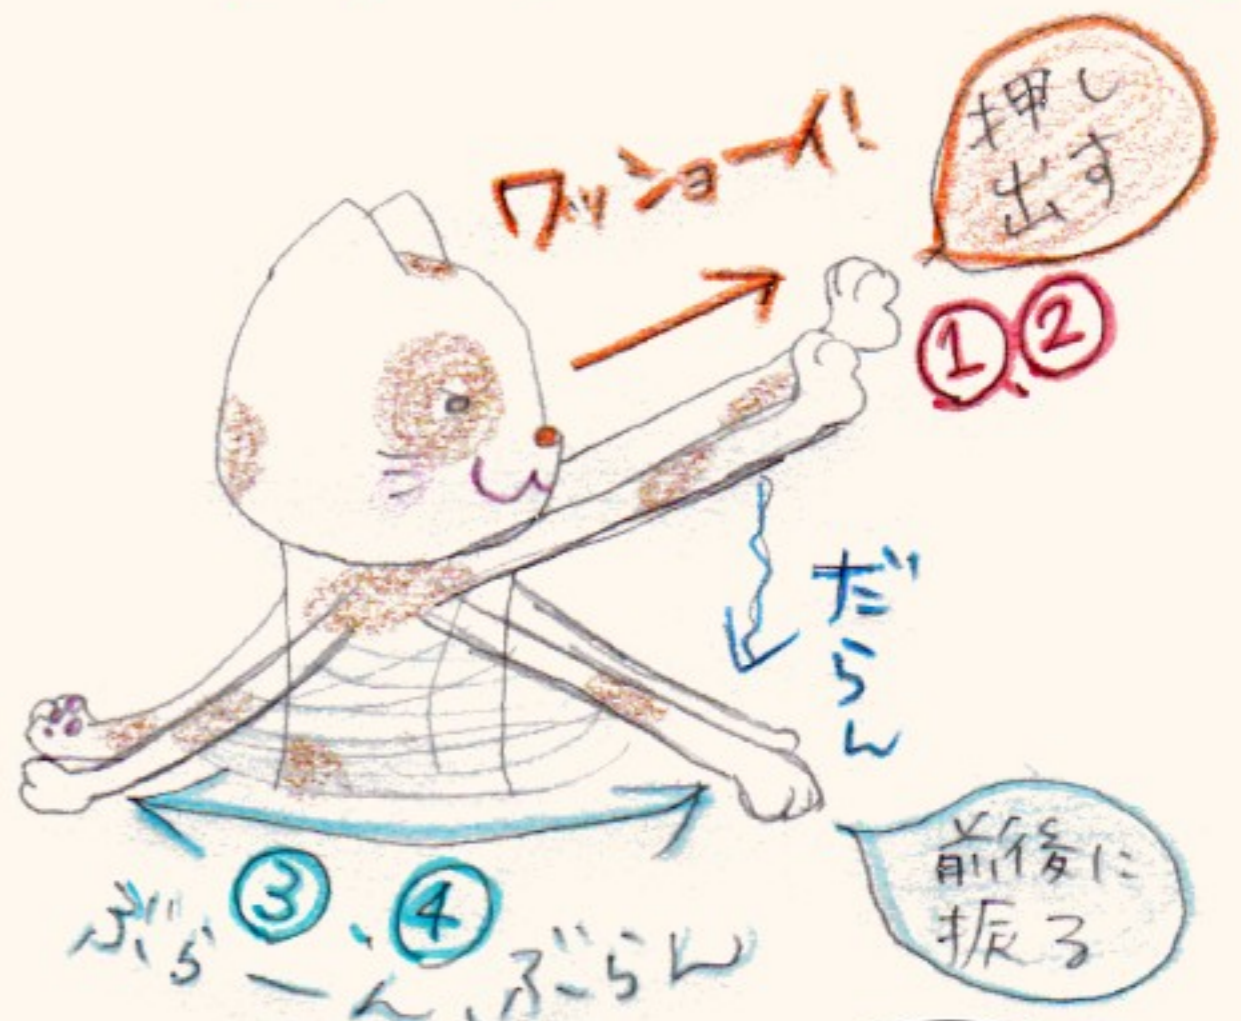 ワッショーイ!
押し
出す
①、②
だらん
前後に
振る
③、④
ぶらーん、ぶらん